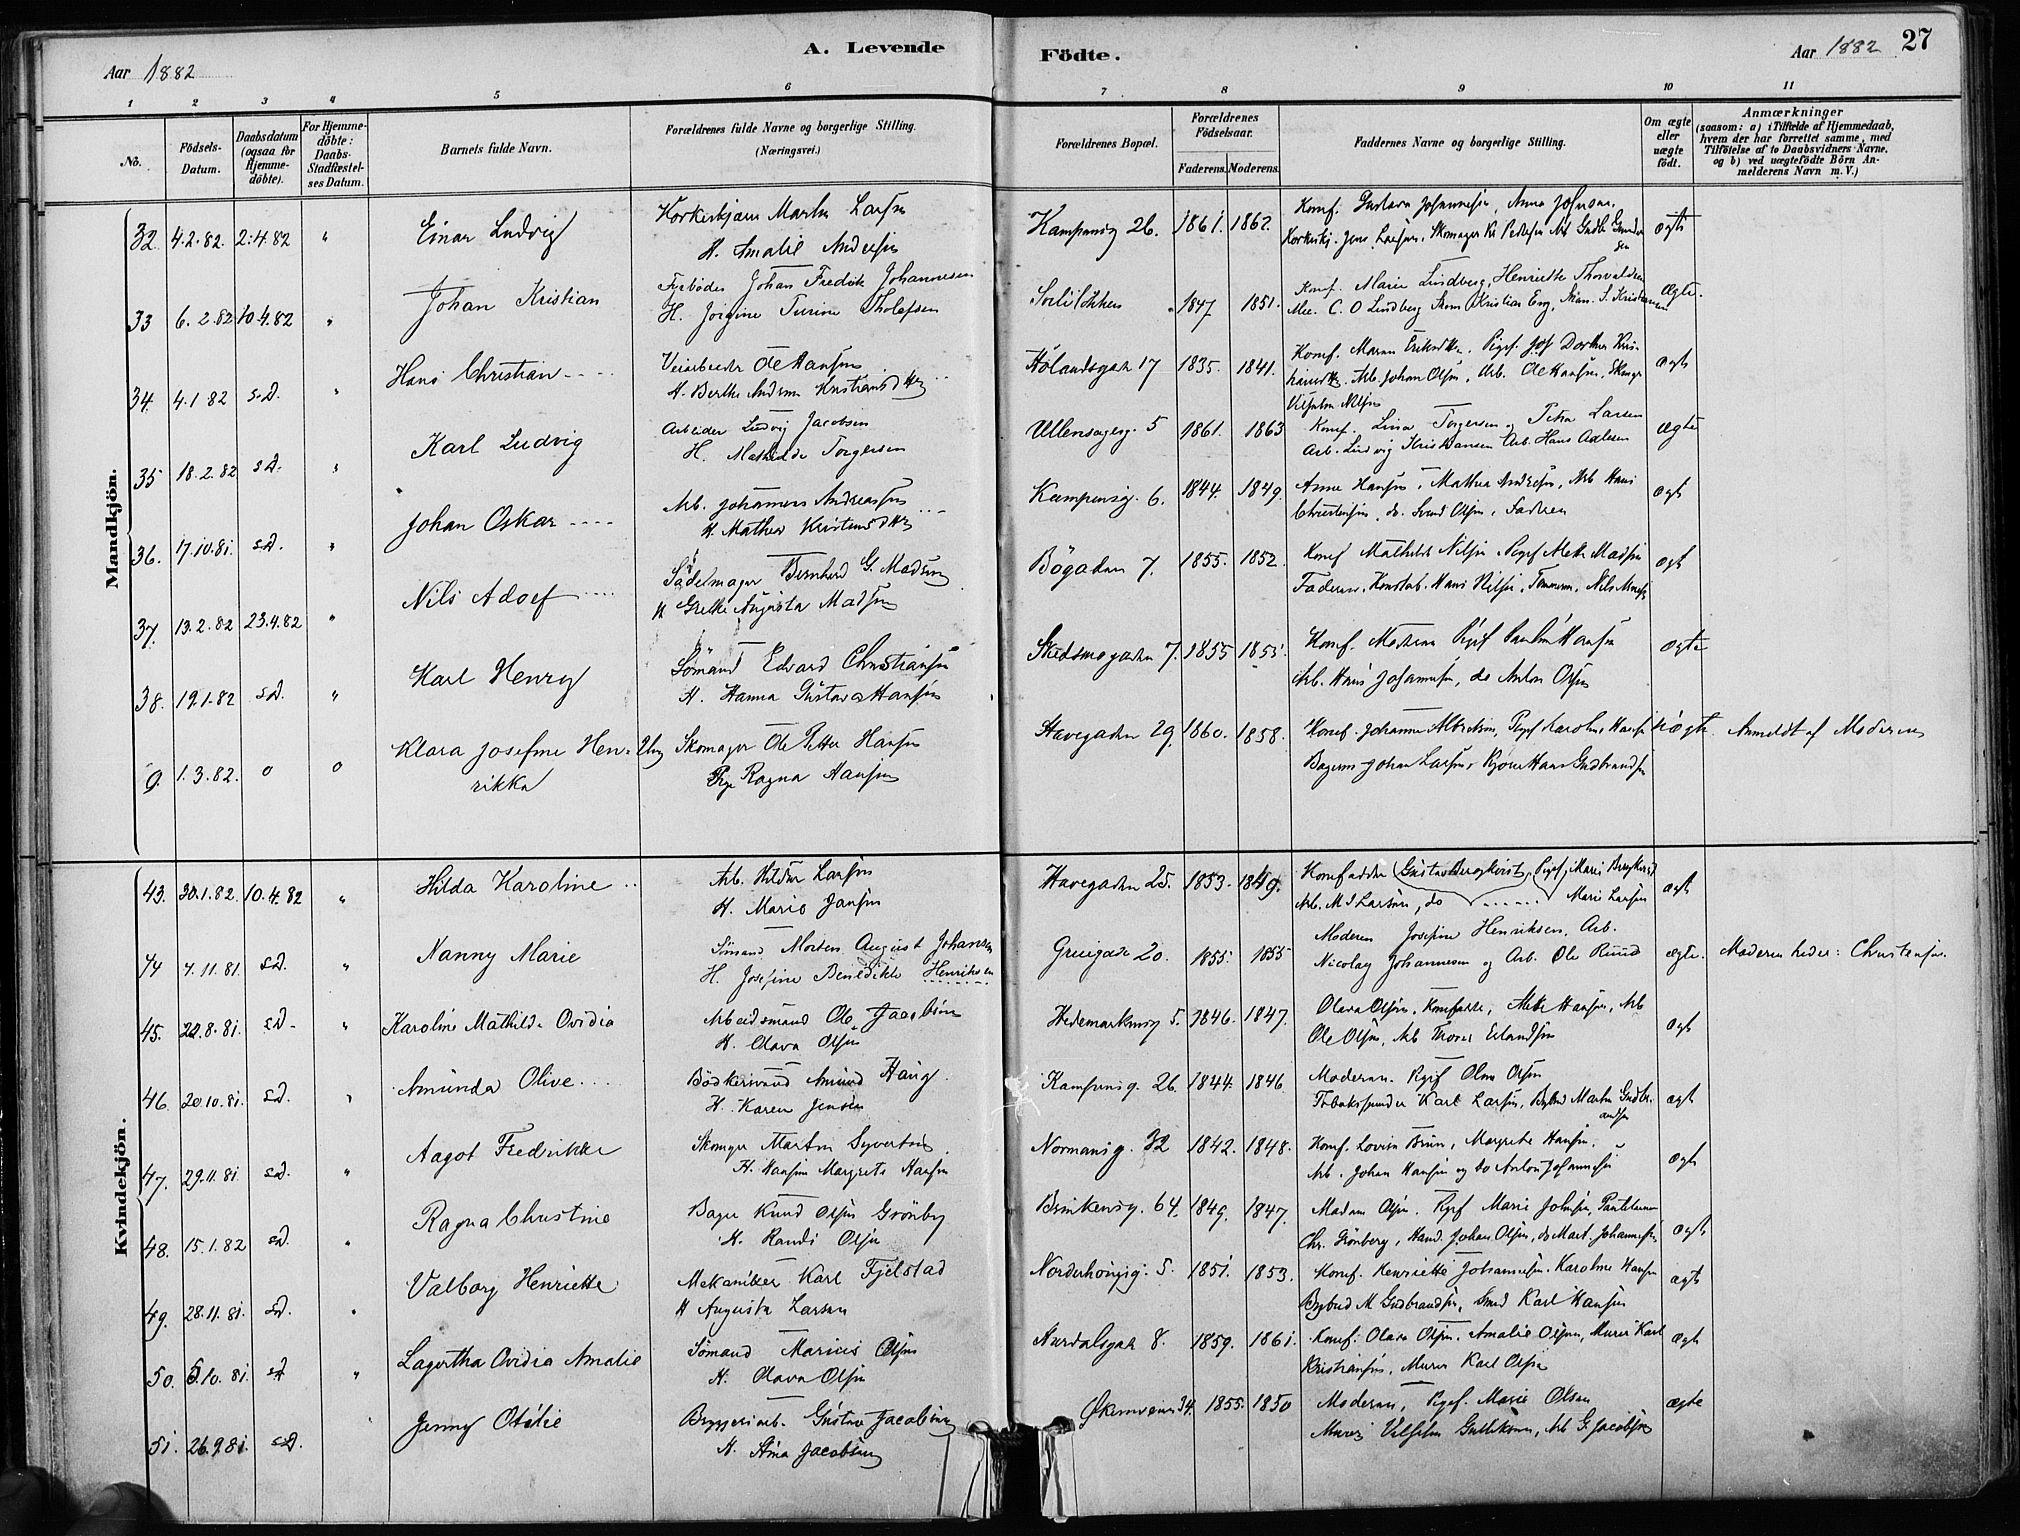 A. Levende Födte.
Aar 1882 Aar 1882 27
1 2 3 4 5 6 7 8 9 10 11
No. Födsels-Datum. Daabsdatum (ogsaa for Hjemme-döbte). For Hjemme-döbte: Daabs-Stadfæstel-ses Datum. Barnets fulde Navn. Forældrenes fulde Navne og borgerlige Stilling. (Næringsvei.) Forældrenes Bopæl. Forældrenes Födselsaar. Faderens. Moderens. Faddernes Navne og borgerlige Stilling. Om ægte eller uægte födt. Anmærkninger (saasom: a) i Tilfælde af Hjemmedaab, hvem der har forrettet samme, med Tilföielse af to Daabsvidners Navne, og b) ved uægtefödte Börn An-melderens Navn m. V.)
Mandkjön.
32. 4.2.82. 2.4.82 " Einar Ludvig Korkeskjærer Martin Larsen Kampensg 26. 1861. 1862. Konf. Gustava Johannesen, Anna Johnsen, ægte
H. Amalie Andersen Korkeskj. Jens Larsen, Skomager
33 6.2.82 10.4.82 " Johan Kristian Fyrböder Johan Fredrik Johannesen Sorlilökken 1847 1851. Konf. Marie Lindberg, Henriette Thorvaldsen Ægte.
H. Jörgine Turine Tholefsen C. O Lindberg
34. 4.1 82 s.D. " Hans Christian Veiarbeider Ole Hansen Hölandsgata 17 1835. 1841. Konf. Maren ægte
H. Berthe Andrea Arb. Johan Olsen, Arb. Ole Hansen,
Vilhelm Nilsen
35 18.2.82 s.D. " Karl Ludvig Arbeider Ludvig Jacobsen Ullensagersg. 5 1861. 1863 Konf. Lina Torgersen, Petra Larsen ægte
H. Mathilde Torgersen Arb. Ludvig Kristiansen Arb. Hans Axelsen
36. 17.10.81. s.D. " Johan Oskar Arb. Johannes Andreassen Kampensg. 6. 1844. 1849. Anne Hansen, Mathea Andersen, Arb Hans ægte
H. Mathea Christensen, do. Svend Olsen, Faderen
37. 13.2.82 23.4.82 " Nils Adolf Sadelmager Bernhard G. Madsen Bögaden 7. 1855. 1852. Konf Mathilde Nilsen, Pigef Mette Madsen ægte
H Grethe Augusta Madsen Faderen, Hans Nilsen,
38. 19.1.82 s.D. " Karl Henry Sömand Edvard Christiansen Skedsmogaden 7. 1855 1855. Konf. Moderen Pigef Pauline Hansen ægte
H. Hanna Gustava Hansen Arb. Hans Johannesen, do Anton Olsen
9. 1.3.82. o o Klara Josefine Hen- Skomager Ole Petter Hansen Havegaden 29. 1860. 1858. Konf. Johanne Albretsen, Pigef Karoline Hansen uægte. Anmeldt af Moderen
rikka Pige Ragna Hansen Bagersv. Johan Larsen, Hans Gudbrandsen
Kvindekjön.
43. 30.1.82. 10.4.82 " Hilda Karoline Arb. Larsen Havegaden 25. 1853. 1849. Konefadder Gustava Bergkvist, Pigef. Marie Bergkvist ægte
H. Marie Jansen Arb. M. Larsen, do Marie Larsen
44 4.11.81. s.D. " Nanny Marie Sömand Morten August Johansen Gruegade 20. 1855. 1855 Moderen Josefine Henriksen, Arb. ægte. Moderen heder: Christensen.
H. Josefine Benedikte Henriksen Nicolay Johannesen og Arb. Ole Ruud
45. 20.8.81. s.D. " Karoline Mathilde Ovidia Arbeidsmand Ole Jacobsen Hedemarkensg 5. 1846. 1847. Olava Olsen, Konefadde, Mette Hansen, Arb ægte
H. Olava Olsen Ole Olsen, Arb Thorer Erlandsen
46. 20.10.81. s.D. " Amunda Olive Bödkersvend Amund Haug Kampensg. 26. 1844. 1846 Moderen. Pigef Olene Olsen ægte
H. Karen Jensen Tobaksspinder Karl Larsen, Martin Gudbrandsen
47. 29.11.81. s.D. " Aagot Fredrikke Skomager Martin Syvertsen Normansg. 32 1842. 1848. Konef. Lovise Brun, Margrete Hansen. ægte
H. Hansine Margrete Hansen Arb. Johan Hansen og do Anton Johannesen
48. 15.1.82 s.D. " Ragna Christine Bager Knud Olsen Grönby Brinkensg. 64. 1849. 1847. Madam Olsen. Pigef Marie Johnsen, ægte
H. Randi Olsen Chr. Grönberg, Hand. Johan Olsen, do Mart. Johannesen
49. 28.11.81. s.D. " Valborg Henriette Mekaniker Karl Fjelstad Norderhougsg. 5. 1851. 1853. Konef. Henriette Johannesen. Karoline Hansen ægte
H Augusta Larsen Bybud M Gudbrandsen, Smed Karl Hansen
50. 5.10.81. s.D " Lagertha Ovidia Amalie Sömand Marius Olsen Aurdalsgata 8. 1859. 1861. Konef. Olava Olsen. Amalie Olsen, Murer Karl ægte
H. Olava Olsen Kristiansen, Murer Karl Olsen
51. 26.9.81. s.D. Jenny Otilie Bryggeriarb. Gustav Jacobsen Økernveien 34. 1855. 1850 Moderen, Pigef. Marie Olsen ægte
H. Stina Jacobsen Murer Vilhelm Gulliksen, Arb G. Jacobsen